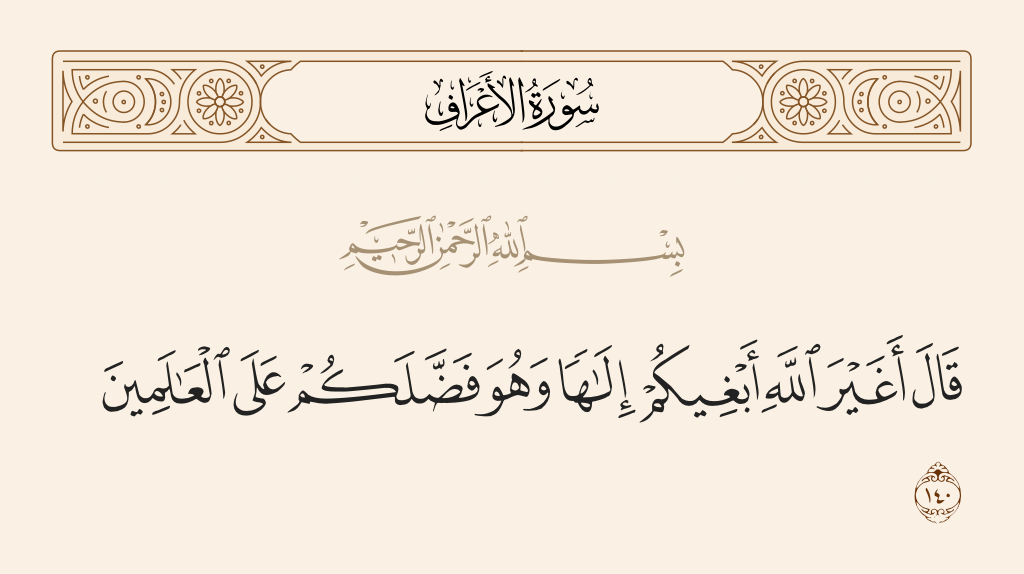 سُورَةُ الأَعْرَافِ
بِسْمِ ٱللَّهِ ٱلرَّحْمَٰنِ ٱلرَّحِيمِ
قَالَ أَغَيْرَ ٱللَّهِ أَبْغِيكُمْ إِلَٰهًا وَهُوَ فَضَّلَكُمْ عَلَى ٱلْعَٰلَمِينَ
١٤٠